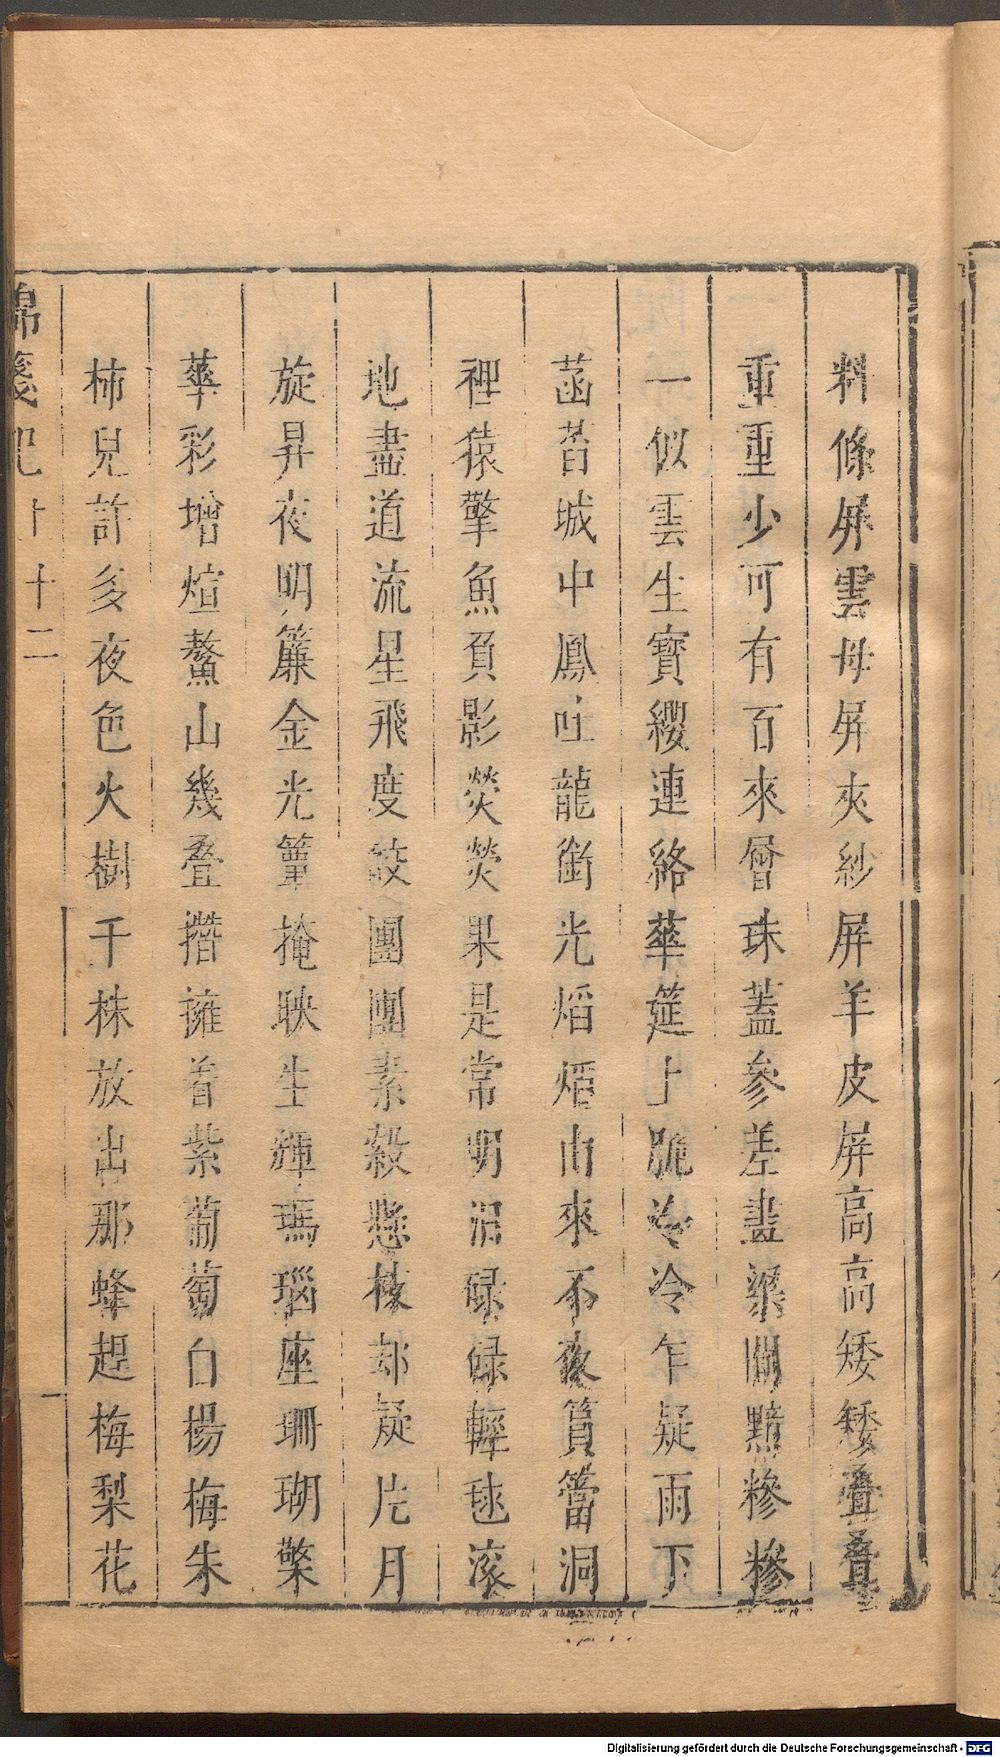 料條屏雲母屏夾紗屏羊皮屏高高矮矮疊疊
重重少可有百來層珠蓋參差畫梁間黯糝糝
一似雲生寶纓連絡華筵上脆冷冷乍疑雨下
菡萏城中鳳吐龍銜光熖熖由來不夜篔簹洞
裡猿擎魚負影熒熒果是常明滑碌碌輕毬滚
地盡道流星飛度皎團團素縠懸枝却疑片月
旋昇夜明簾金光篁掩映生輝瑪瑙座珊瑚檠
華彩增煊鰲山幾疊攢擁着紫葡萄白楊梅朱
柿兒許多夜色火樹千株放出那蜂趕梅梨花
錦箋記 十二
Digitalisierung gefördert durch die Deutsche Forschungsgemeinschaft - DFG